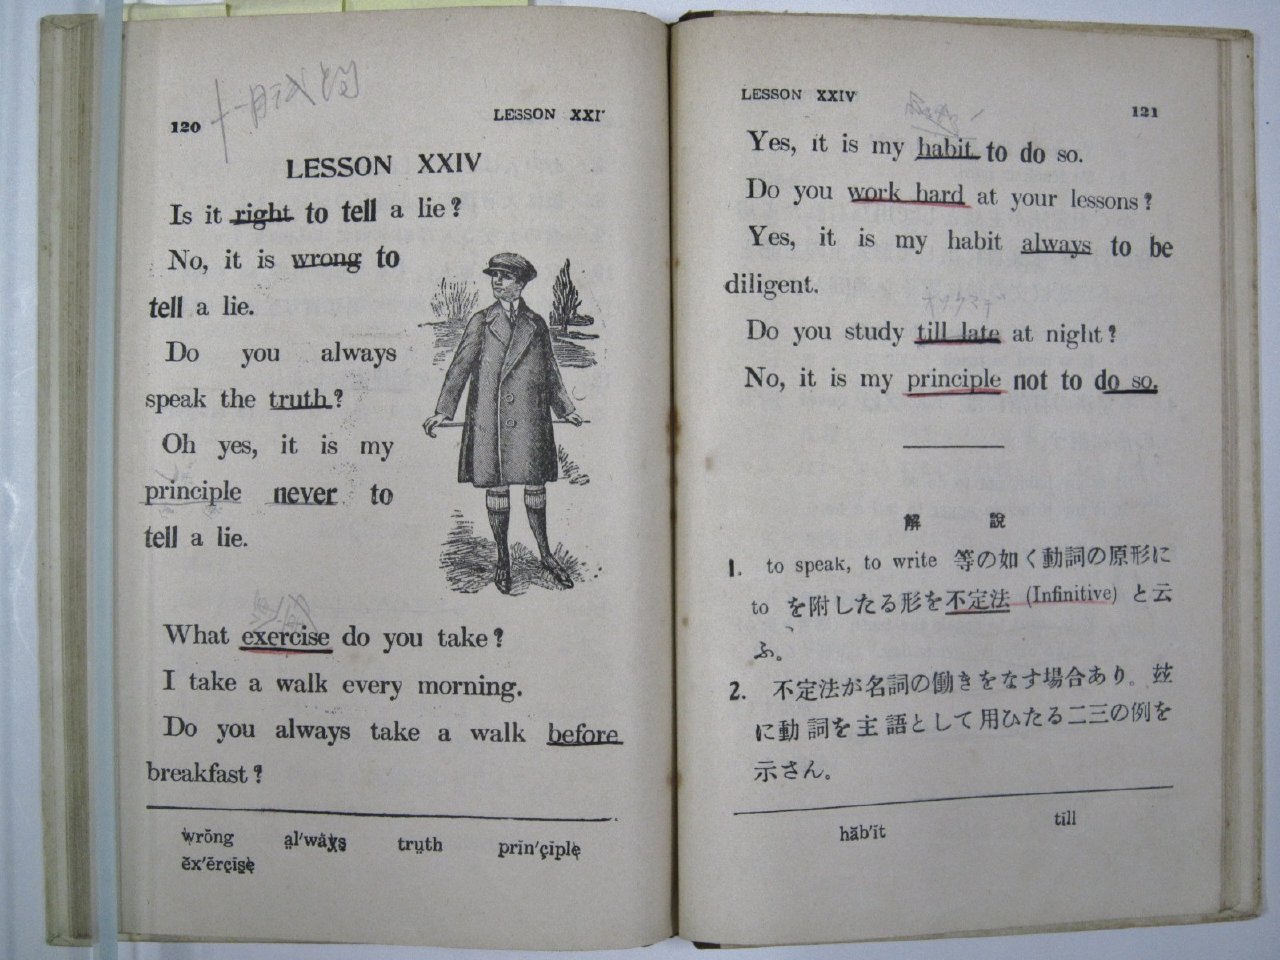 120
LESSON XXI
LESSON XXIV
Is it right to tell a lie?
No, it is wrong to
tell a lie.
Do you always
speak the truth?
Oh yes, it is my
principle never to
tell a lie.
What exercise do you take?
I take a walk every morning.
Do you always take a walk before
breakfast?
wrŏng al'wāys truth prĭn'çĭple
ĕx'ẽrçīşe
LESSON XXIV
121
Yes, it is my habit to do so.
Do you work hard at your lessons?
Yes, it is my habit always to be
diligent.
Do you study till late at night?
No, it is my principle not to do so.
解 說
1. to speak, to write 等の如く動詞の原形に
to を附したる形を不定法 (Infinitive) と云
ふ。
2. 不定法が名詞の働きをなす場合あり。玆
に動詞を主語として用ひたる二三の例を
示さん。
hăb'ĭt till